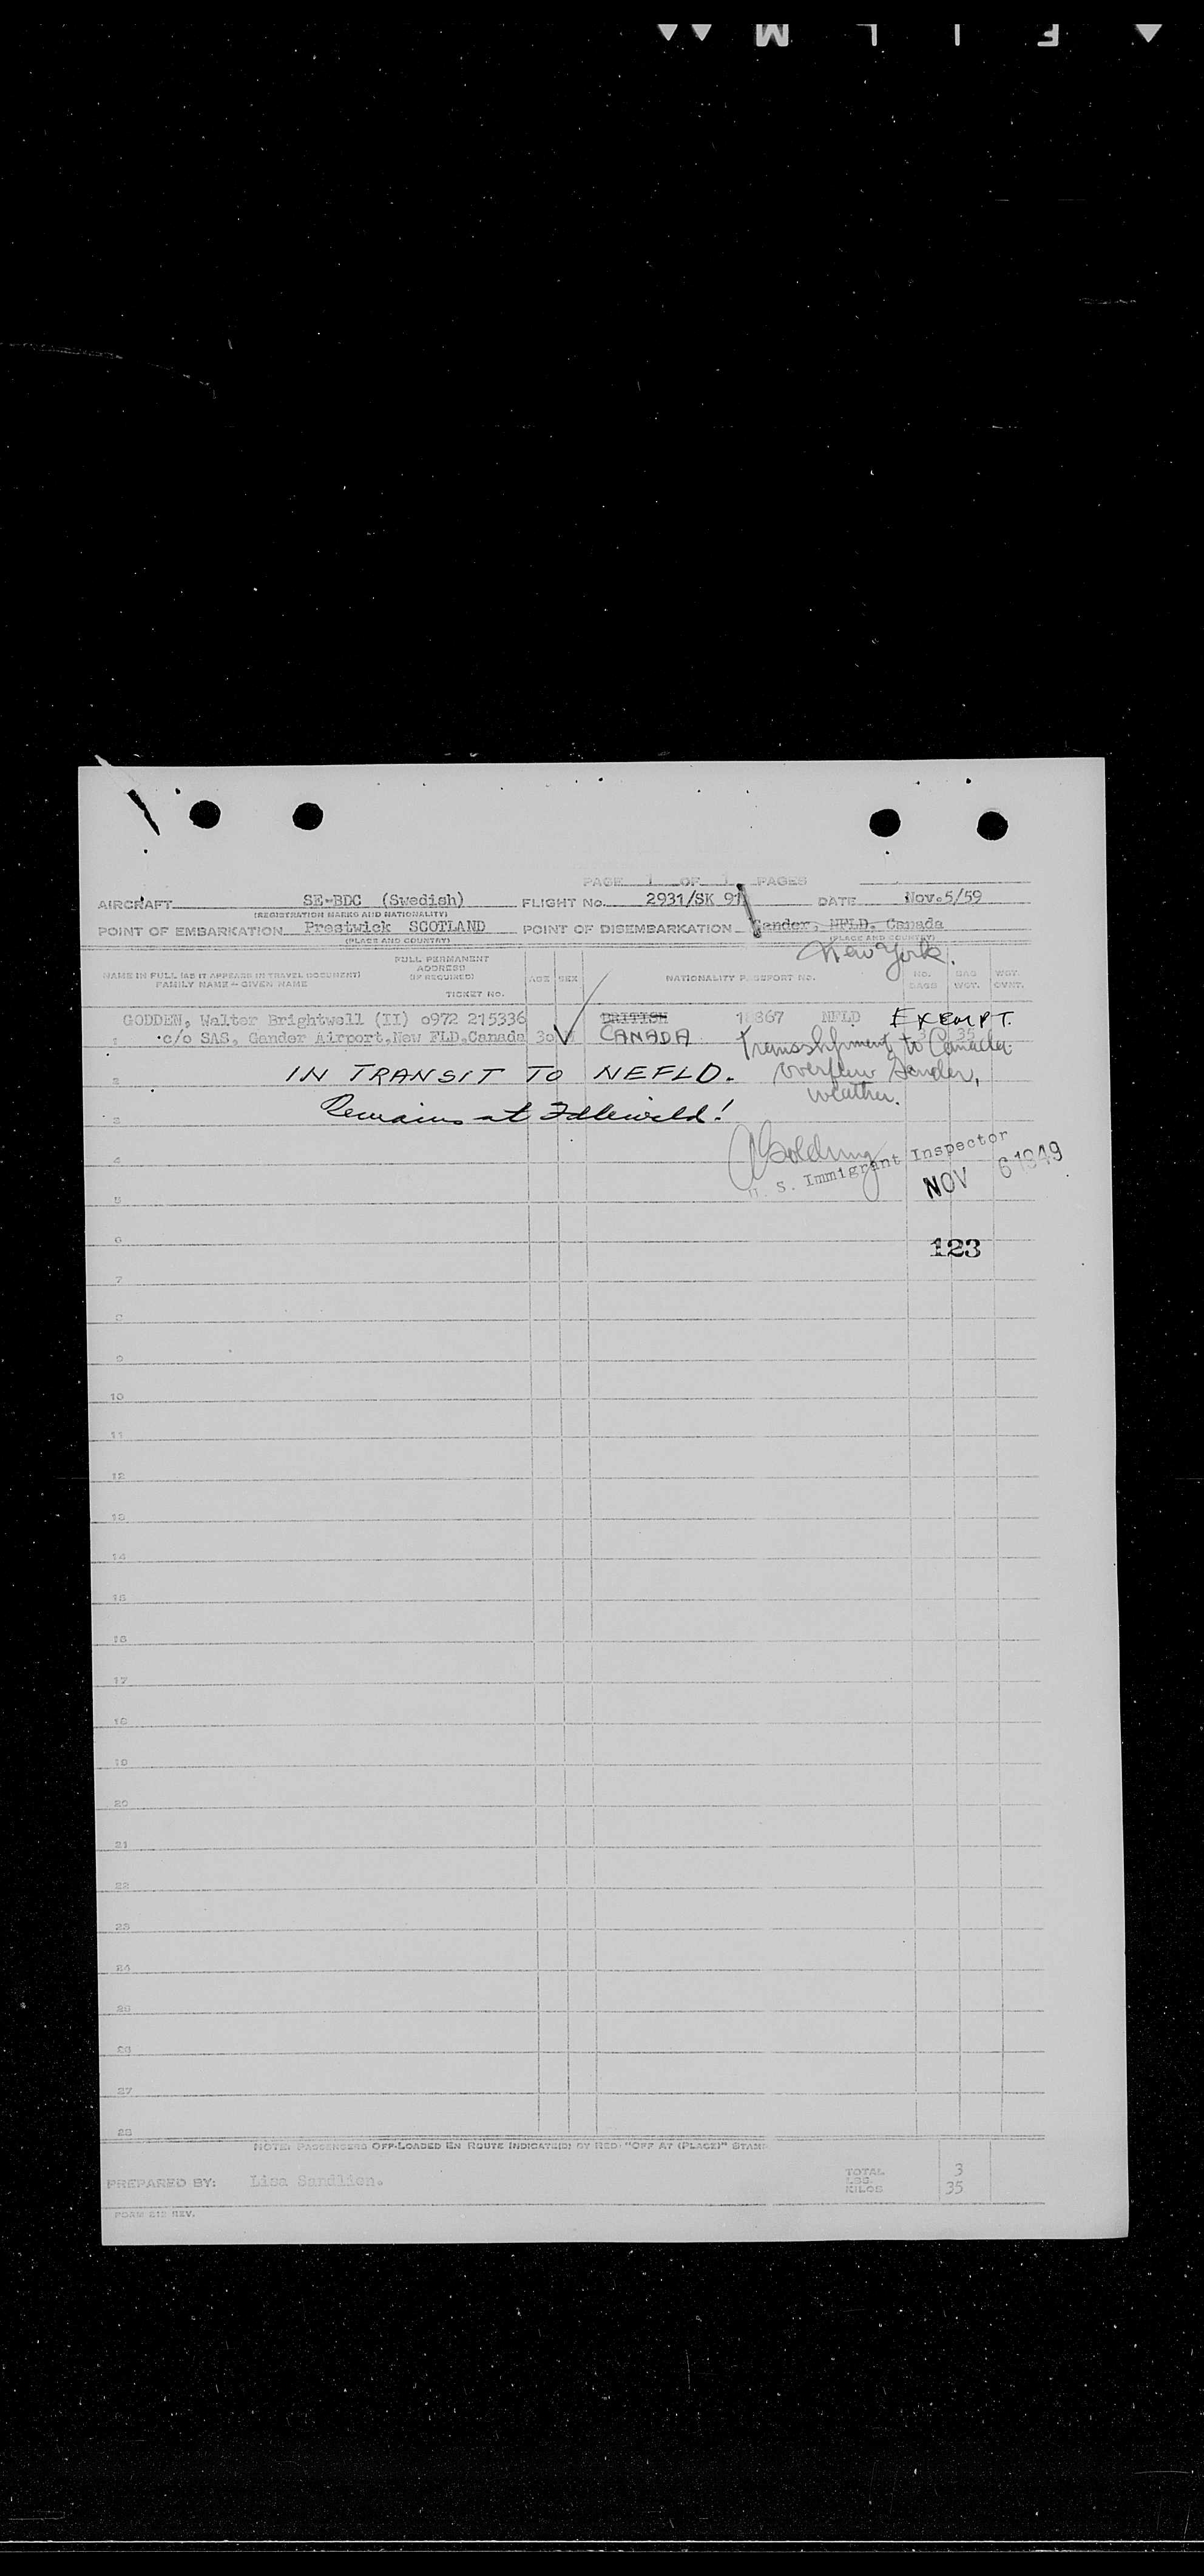 FILM
PAGE 1 OF 1 PAGES
AIRCRAFT SE-BDC (Swedish) FLIGHT No. 2931/SK 91 DATE Nov.5/59
(REGISTRATION MARKS AND NATIONALITY)
POINT OF EMBARKATION Prestwick SCOTLAND POINT OF DISEMBARKATION Gander, NFLD, Canada
(PLACE AND COUNTRY) (PLACE AND COUNTRY)
New York.
NAME IN FULL (AS IT APPEARS IN TRAVEL DOCUMENT) FULL PERMANENT ADDRESS (IF REQUIRED) AGE SEX NATIONALITY PASSPORT NO. NO. BAGS BAG. WGT. WGT.
FAMILY NAME - GIVEN NAME
TICKET NO.
GODDEN, Walter Brightwell (II) o972 215336 BRITISH 18867 NFLD EXEMPT.
1 c/o SAS, Gander Airport, New FLD, Canada 30 CANADA 3 35
Transshipment to Canada
2 IN TRANSIT TO NEFLD. overflew Gander,
weather.
3 Remains at Idlewild!
4 U. S. Immigrant Inspector
NOV 6 1949
5
6 123
7
8
9
10
11
12
13
14
15
16
17
18
19
20
21
22
23
24
25
26
27
28
NOTE: PASSENGERS OFF-LOADED EN ROUTE INDICATED BY RED "OFF AT (PLACE)" STAMP
PREPARED BY: Lisa Sandlien. TOTAL 3
LBS.
KILOS 35
FORM 212 REV.